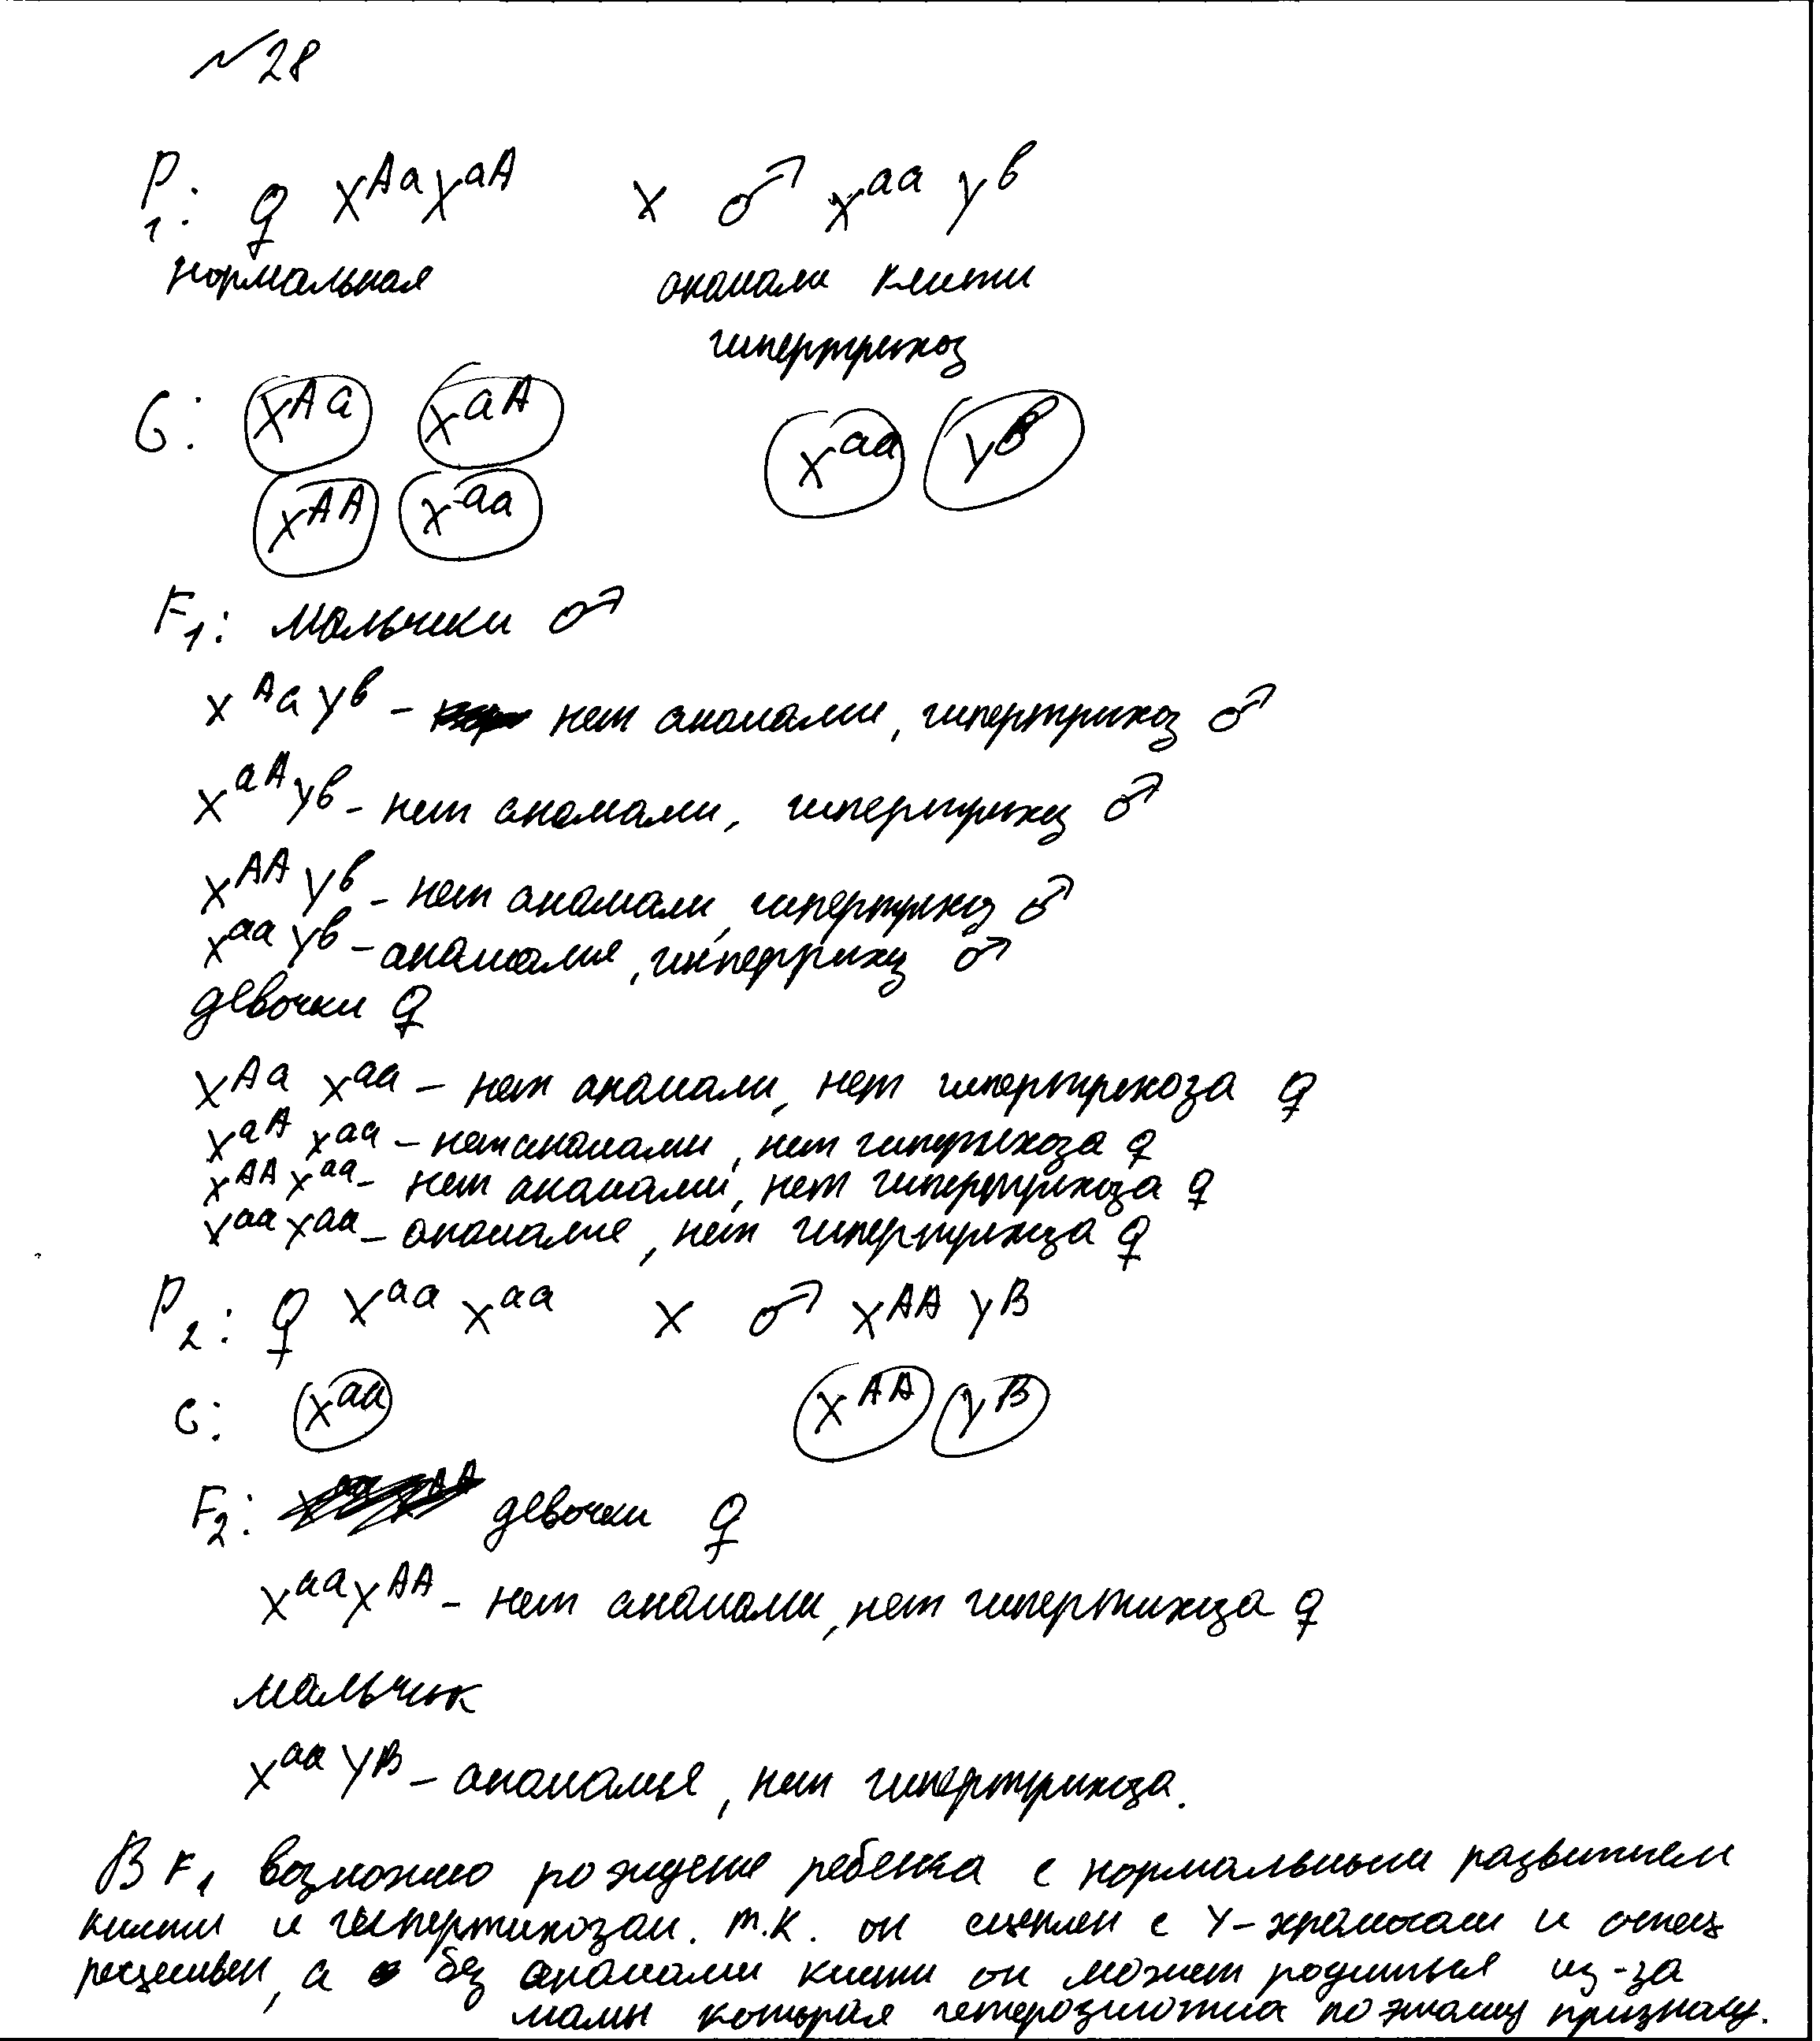 №28
P₁: ♀ X^Aa X^aA x ♂ X^aa Y^в
нормальная анамали кисти
гипертрихоз
G: X^Aa X^aA X^aa Y^B
X^AA X^aa
F₁: мальчики ♂
X^Aa Y^в – нет анамалии, гипертрихоз ♂
X^aA Y^в – нет анамалии, гипертрихоз ♂
X^AA Y^в – нет анамали, гипертрихоз ♂
X^aa Y^в – анамалия, гипертрихоз ♂
девочки ♀
X^Aa X^aa – нет анамали, нет гипертрихоза ♀
X^aA X^aa – нет анамалии, нет гипертрихоза ♀
X^AA X^aa – нет анамалии, нет гипертрихоза ♀
X^aa X^aa – анамалия, нет гипертрихоза ♀
P₂: ♀ X^aa X^aa x ♂ X^AA Y^B
G: X^aa X^AA Y^B
F₂: девочки ♀
X^aa X^AA – нет анамалии, нет гипертихоза ♀
мальчик
X^aa Y^B – анамалия, нет гипертрихоза.
В F₁ возможно рождение ребенка с нормальным развитием
кисти и гипертихозам. т.к. он сцеплен с Y-храмосам и отец
рецесивен, а без анамали кисти он может родиться из-за
мамы которая гетерозиготна по этаму признаку.